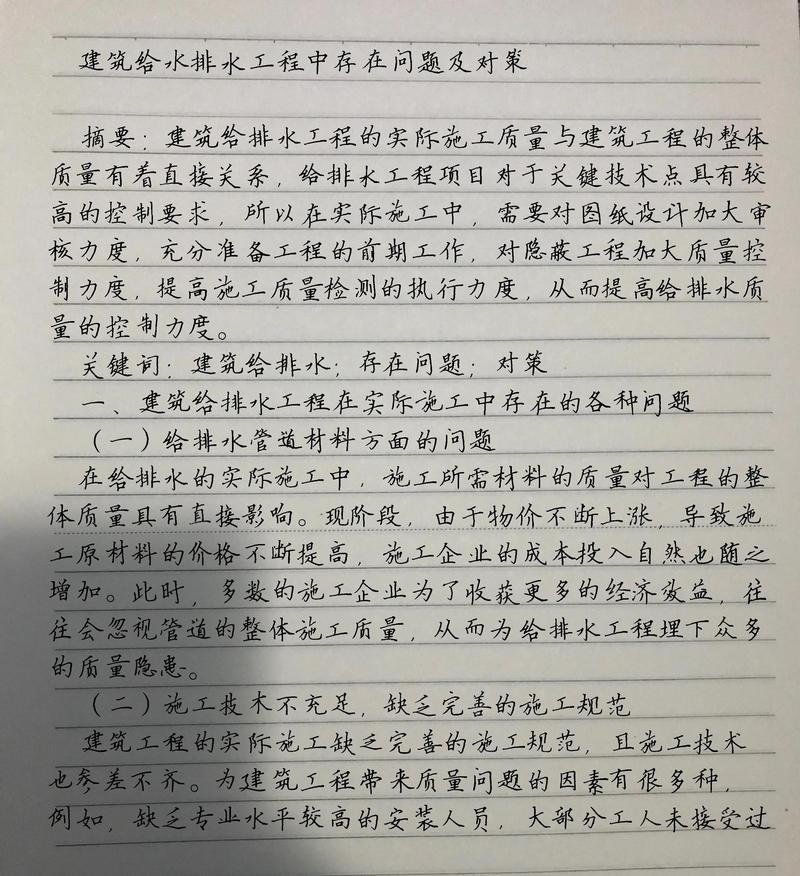 建筑给水排水工程中存在问题及对策
摘要：建筑给排水工程的实际施工质量与建筑工程的整体
质量有着直接关系，给排水工程项目对于关键技术点具有较
高的控制要求，所以在实际施工中，需要对图纸设计加大审
核力度，充分准备工程的前期工作，对隐蔽工程加大质量控
制力度，提高施工质量检测的执行力度，从而提高给排水质
量的控制力度。
关键词：建筑给排水；存在问题；对策
一、建筑给排水工程在实际施工中存在的各种问题
（一）给排水管道材料方面的问题
在给排水的实际施工中，施工所需材料的质量对工程的整
体质量具有直接影响。现阶段，由于物价不断上涨，导致施
工原材料的价格不断提高，施工企业的成本投入自然也随之
增加。此时，多数的施工企业为了收获更多的经济效益，往
往会忽视管道的整体施工质量，从而为给排水工程埋下众多
的质量隐患。
（二）施工技术不充足，缺乏完善的施工规范
建筑工程的实际施工缺乏完善的施工规范，且施工技术
也参差不齐。为建筑工程带来质量问题的因素有很多种，
例如，缺乏专业水平较高的安装人员，大部分工人未接受过